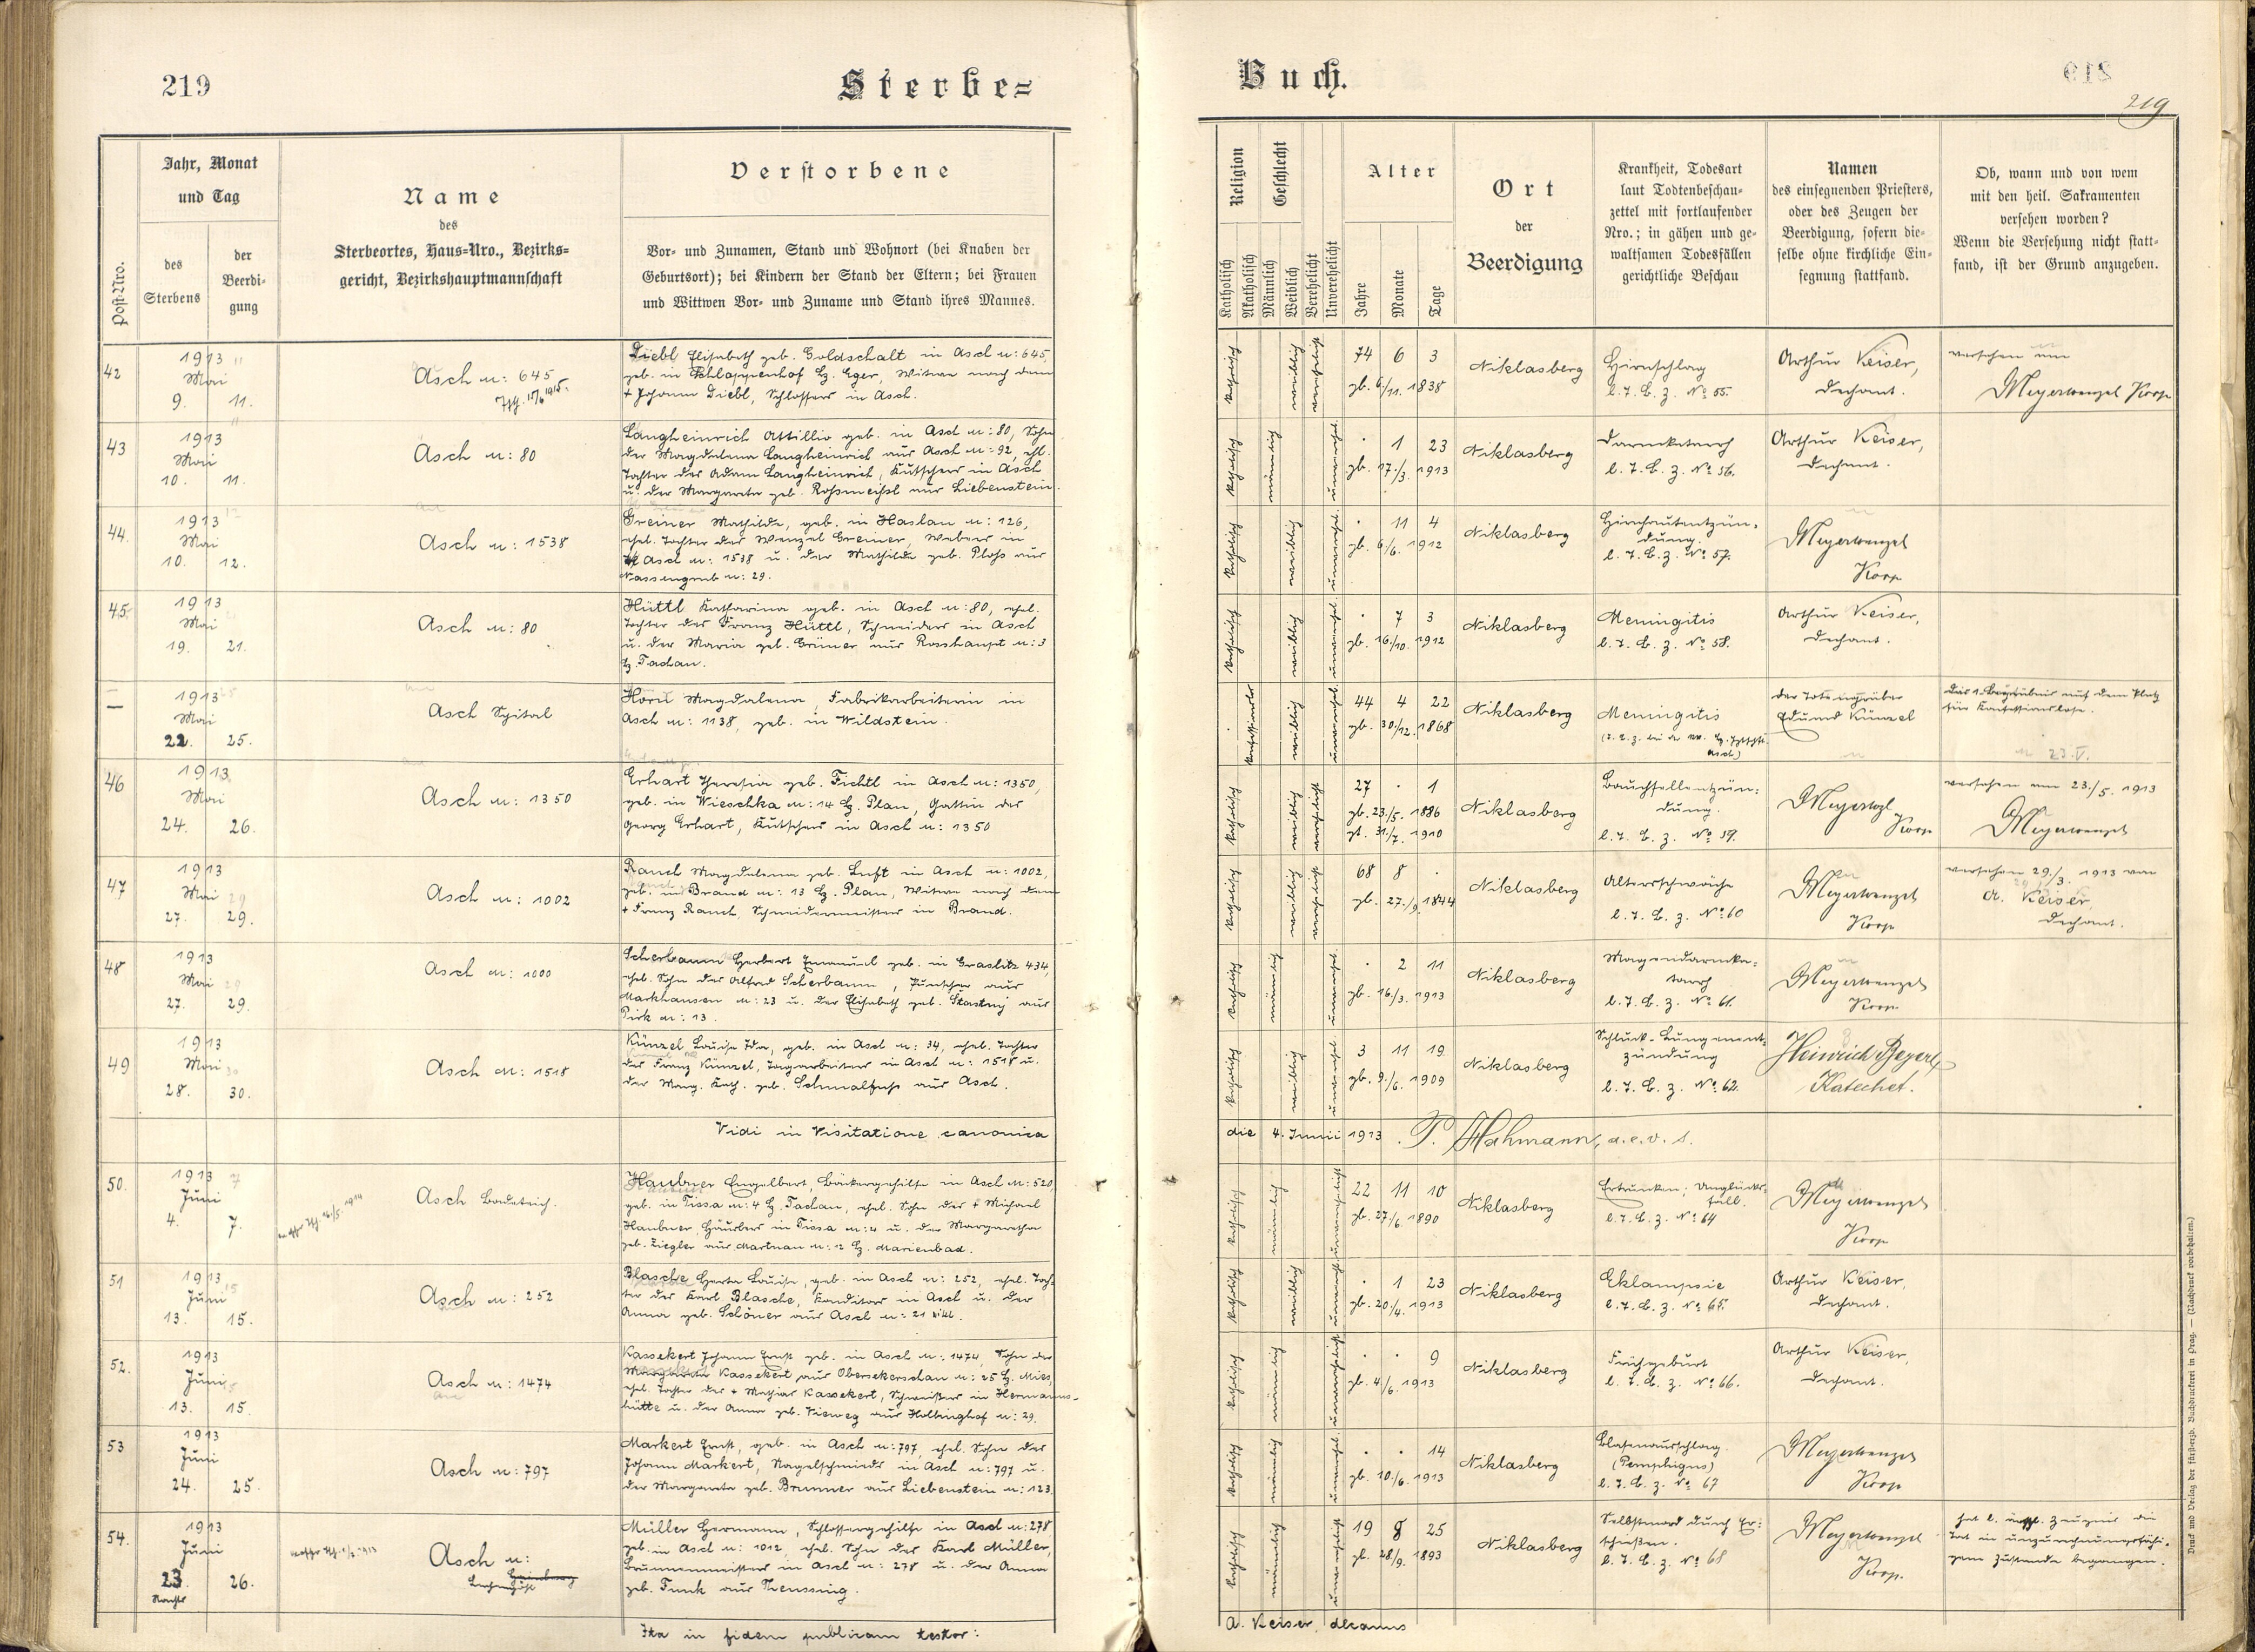 219
Sterbe=
Buch.
219
Post-Nro.
Jahr, Monat
und Tag
des
Sterbens
der
Beerdi-
gung
Name
des
Sterbeortes, Haus-Nro., Bezirks-
gericht, Bezirkshauptmannschaft
Verstorbene
Vor- und Zunamen, Stand und Wohnort (bei Knaben der
Geburtsort); bei Kindern der Stand der Eltern; bei Frauen
und Wittwen Vor- und Zuname und Stand ihres Mannes.
Religion
Katholisch
Akatholisch
Geschlecht
Männlich
Weiblich
Verehelicht
Unverehelicht
Alter
Jahre
Monate
Tage
Ort
der
Beerdigung
Krankheit, Todesart
laut Todtenbeschau-
zettel mit fortlaufender
Nro.; in gähen und ge-
waltsamen Todesfällen
gerichtliche Beschau
Namen
des einsegnenden Priesters,
oder des Zeugen der
Beerdigung, sofern die-
selbe ohne kirchliche Ein-
segnung stattfand.
Ob, wann und von wem
mit den heil. Sakramenten
versehen worden?
Wenn die Versehung nicht statt-
fand, ist der Grund anzugeben.
42
1913
Mai
9. 11.
Asch n: 645
Diebl Elisabeth geb. Goldschalt in Asch n: 645,
geb. in Schloppenhof Bz. Eger, Witwe nach dem
+ Johann Diebl, Schlossers in Asch.
katholisch
weiblich
74 6 3
gb. 6/11. 1838
Niklasberg
Hirnschlag
l. T. B. z. No 55.
Arthur Keiser,
Dechant.
versehen
Meyerwenzel Koop
43
1913
Mai
10. 11.
Asch n: 80
Langheinrich Attillio geb. in Asch n: 80, Sohn
der Magdalena Langheinrich aus Asch n: 92, ehl.
Tochter des Adam Langheinrich, Kutschers in Asch
u. der Margareta geb. Rossmeissl aus Liebenstein.
katholisch
männlich
. 1 23
gb. 17./3. 1913
Niklasberg
Darmkatarrh
l. T. B. z. No 56.
Arthur Keiser,
Dechant.
44.
1913
Mai
10. 12.
Asch n: 1538
Greiner Mathilde, geb. in Haslau n: 126,
ehel. Tochter des Wenzel Greiner, Webers in
Asch n: 1538 u. der Mathilde geb. Ploss aus
Nassengrub n: 29.
katholisch
weiblich
. 11 4
gb. 6/6. 1912
Niklasberg
Hirnhautentzün-
dung.
l. T. B. z. No 57.
Meyerwenzel
Koop
45.
1913
Mai
19. 21.
Asch n: 80
Hüttl Katharina geb. in Asch n: 80, ehel.
Tochter des Franz Hüttl, Schneiders in Asch
u. der Maria geb. Grüner aus Rosshaupt n: 3
Bz. Tachau.
katholisch
weiblich
. 7 3
gb. 16/10. 1912
Niklasberg
Meningitis
l. T. B. z. No 58.
Arthur Keiser,
Dechant.
—
1913
Mai
22. 25.
Asch Spital
Horn Magdalena, Fabrikarbeiterin in
Asch n: 1138, geb. in Wildstein.
konfessionslos
weiblich
44 4 22
gb. 30/12. 1868
Niklasberg
Meningitis
Asch)
der Totengräber
Eduard Künzel
Das 1. Begräbnis auf dem Platz
für Konfessionslose.
23.V.
46
1913
Mai
24. 26.
Asch n: 1350
Erhart Theresia geb. Fichtl in Asch n: 1350,
geb. in Wieschka n: 14 Bz. Plan, Gattin des
Georg Erhart, Kutschers in Asch n: 1350
katholisch
weiblich
27 . 1
gb. 23./5. 1886
gt. 31/7. 1910
Niklasberg
Bauchfellentzün-
dung.
l. T. B. z. No 59.
Meyerwzl
Koop
versehen am 23./5. 1913
Meyerwenzel
47
1913
Mai
27. 29.
Asch n: 1002
Rauch Magdalena geb. Luft in Asch n: 1002,
geb. in Brand n: 13 Bz. Plan, Witwe nach dem
+ Franz Rauch, Schneidermeisters in Brand.
katholisch
weiblich
68 8 .
gb. 27./9. 1844
Niklasberg
Altersschwäche
l. T. B. z. No 60
Meyerwenzel
Koop
versehen 29./3. 1913 von
A. Keiser,
Dechant.
48
1913
Mai
27. 29.
Asch n: 1000
Scherbaum Herbert Emanuel geb. in Graslitz 434,
ehel. Sohn des Alfred Scherbaum, aus
Markhausen n: 23 u. der Elisabeth geb. Stastny aus
Pirk n: 13.
katholisch
männlich
. 2 11
gb. 16/3. 1913
Niklasberg
Magendarmka-
tarrh
l. T. B. z. No 61.
Meyerwenzel
Koop
49
1913
Mai
28. 30.
Asch n: 1518
Künzel Louise Ida, geb. in Asch n: 34, ehel. Tochter
des Franz Künzel, Tagarbeiters in Asch n: 1518 u.
der Marg. Kath. geb. Schmalfuss aus Asch.
katholisch
weiblich
3 11 19
gb. 9./6. 1909
Niklasberg
Schluck-Lungenent-
zündung
l. T. B. z. No 62.
Heinrich Beyerl,
Katechet.
Vidi in Visitatione canonica
die 4. Junii 1913. P. Hahmann, a.e.v.s.
50.
1913
Juni
4. 7.
Asch Badeteich.
Haubner Engelbert, Bäckergehilfe in Asch n: 520,
geb. in Tissa n: 4 Bz. Tachau, ehel. Sohn des + Michael
Haubner, Häuslers in Tissa n: 4 u. der Margaretha
geb. Ziegler aus Martnau n: 2 Bz. Marienbad.
katholisch
männlich
22 11 10
gb. 27/6 1890
Niklasberg
Ertrunken; Unglücks-
fall.
l. T. B. z. No 64
Meyerwenzel
Koop
51
1913
Juni
13. 15.
Asch n: 252
Blasche Herta Louise, geb. in Asch n: 252, ehel. Toch-
ter des Karl Blasche, Konditors in Asch u. der
Anna geb. Schöner aus Asch n: 21
katholisch
weiblich
. 1 23
gb. 20/4. 1913
Niklasberg
Eklampsie
l. T. B. z. No 65.
Arthur Keiser,
Dechant.
52.
1913
Juni
13. 15.
Asch n: 1474
Kassekert Johann Ernst geb. in Asch n: 1474, Sohn der
Kassekert aus Obersekerschan n: 25 Bz. Mies,
ehel. Tochter des + Mathias Kassekert, in Hermanns-
hütte u. der Anna geb. Vieweg aus Holbinghof n: 29.
katholisch
männlich
. . 9
gb. 4/6. 1913
Niklasberg
Frühgeburt
l. T. B. z. No 66.
Arthur Keiser,
Dechant.
53
1913
Juni
24. 25.
Asch n: 797
Markert Ernst, geb. in Asch n: 797, ehel. Sohn des
Johann Markert, Nagelschmieds in Asch n: 797 u.
der Margareta geb. Brunner aus Liebenstein n: 123.
katholisch
männlich
. . 14
gb. 10./6. 1913
Niklasberg
Blasenausschlag
(Pemphigus)
l. T. B. z. No 67
Meyerwenzel
Koop
54.
1913
Juni
23. 26.
Nachts
Asch n:
Müller Hermann, Schlossergehilfe in Asch n: 278
geb. in Asch n: 1012, ehel. Sohn des Karl Müller,
Brunnenmeisters in Asch n: 278 u. der Anna
geb. Funk aus Theussing.
katholisch
männlich
19 8 25
gb. 28/9. 1893
Niklasberg
Selbstmord durch Er-
schießen.
l. T. B. z. No 68
Meyerwenzel
Koop.
hat l. Zeugnis die
Tat in unzurechnungsfähi-
gem Zustande begangen.
Ita in fidem publicam testor:
A. Keiser, decanus
Druck und Verlag der fürsterzb. Buchdruckerei in Prag. — (Nachdruck vorbehalten.)